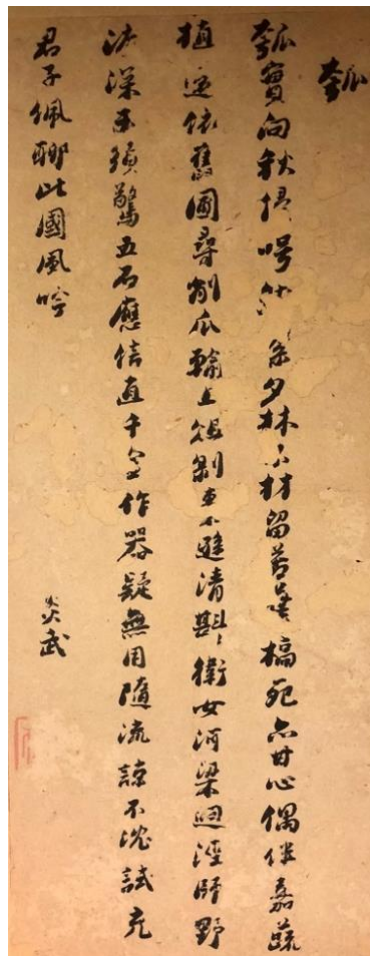 瓠
瓠實向秋侵呺然系夕林不材留苦葉槁死亦甘心偶伴嘉蔬
植還依舊圃尋削瓜輸上俎剝棗避清斟衛女河梁迥涇師野
渡深未須驚五石應信直千金作器疑無用隨流諒不沈試充
君子佩聊比國風吟
炎武